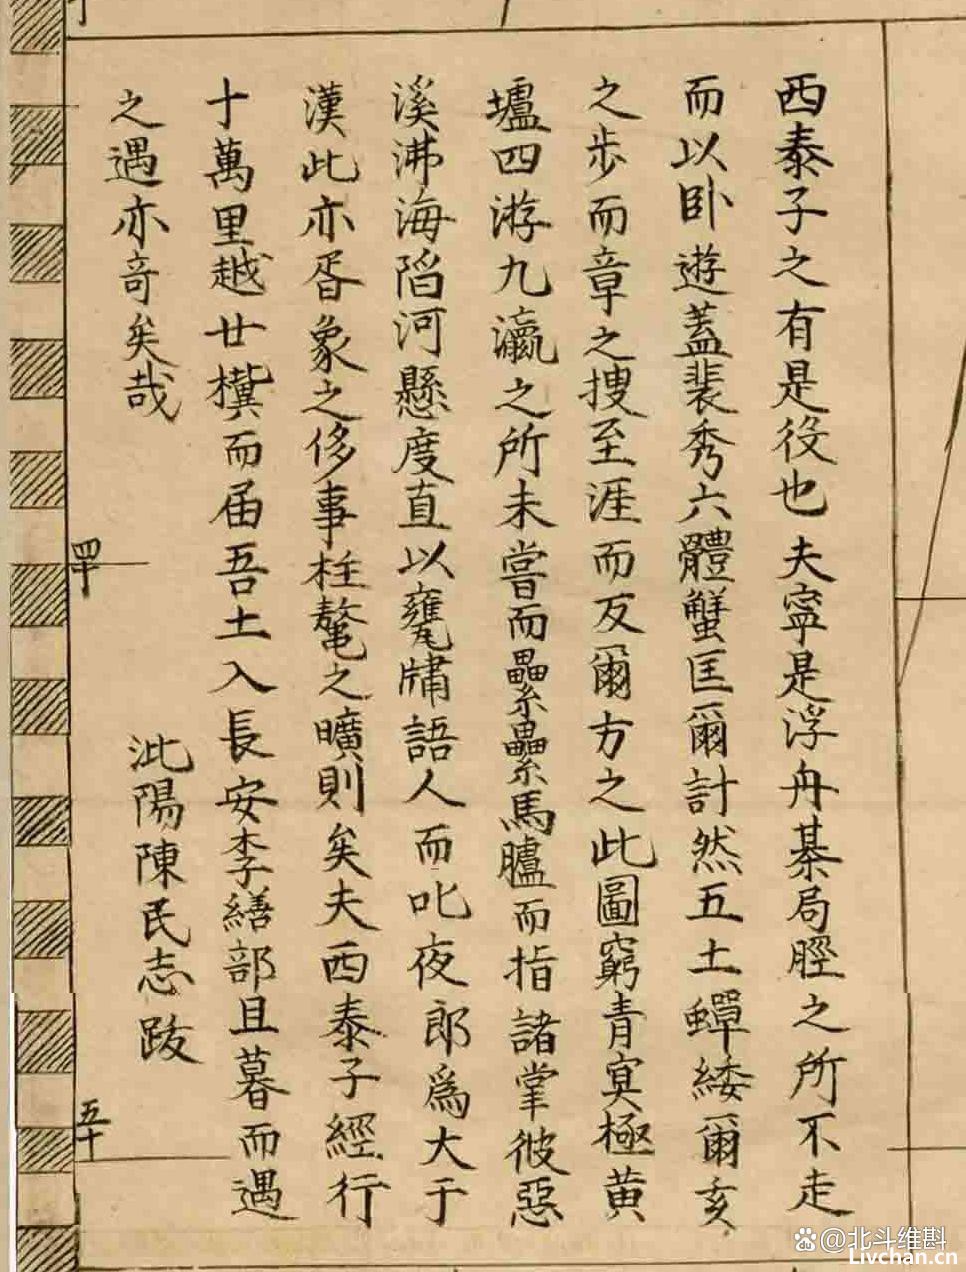 西泰子之有是役也夫寧是浮舟綦局脛之所不走
而以卧遊蓋裴秀六體蟹匡爾計然五土蟬緌爾亥
之步而章之搜至涯而反爾方之此圖窮青冥極黄
壚四游九瀛之所未嘗而纍纍馬臚而指諸掌彼惡
溪沸海陷河懸度直以甕牖語人而叱夜郎爲大于
漢此亦胥象之侈事柱鼇之曠則矣夫西泰子經行
十萬里越廿禩而届吾土入長安李繕部且暮而遇
之遇亦竒矣哉
沘陽陳民志跋
四十
五十
@北斗维斟
Livchan.cn